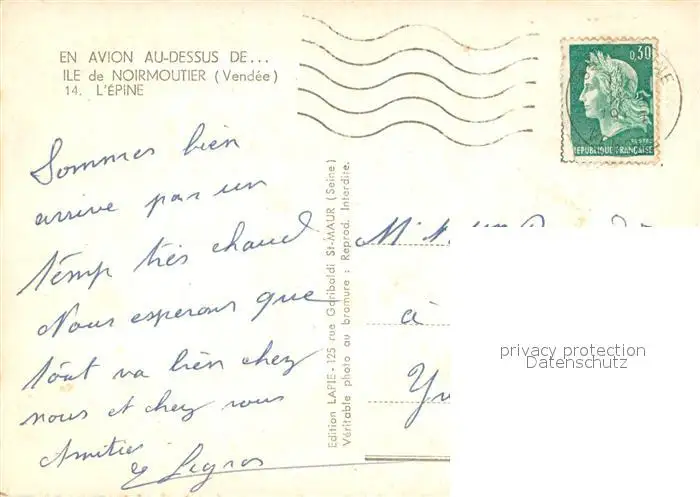 EN AVION AU-DESSUS DE...
ILE de NOIRMOUTIER (Vendée)
14. L'ÉPINE
0,30
REPUBLIQUE FRANÇAISE
Sommes bien
arrive par un
temp très chaud
Nous esperons que
tout va bien chez
nous et chez vous
Amitié
Legros
Edition LAPIE - 125 rue Garibaldi St-MAUR (Seine)
Véritable photo au bromure : Reprod. Interdite.
à
privacy protection
Datenschutz